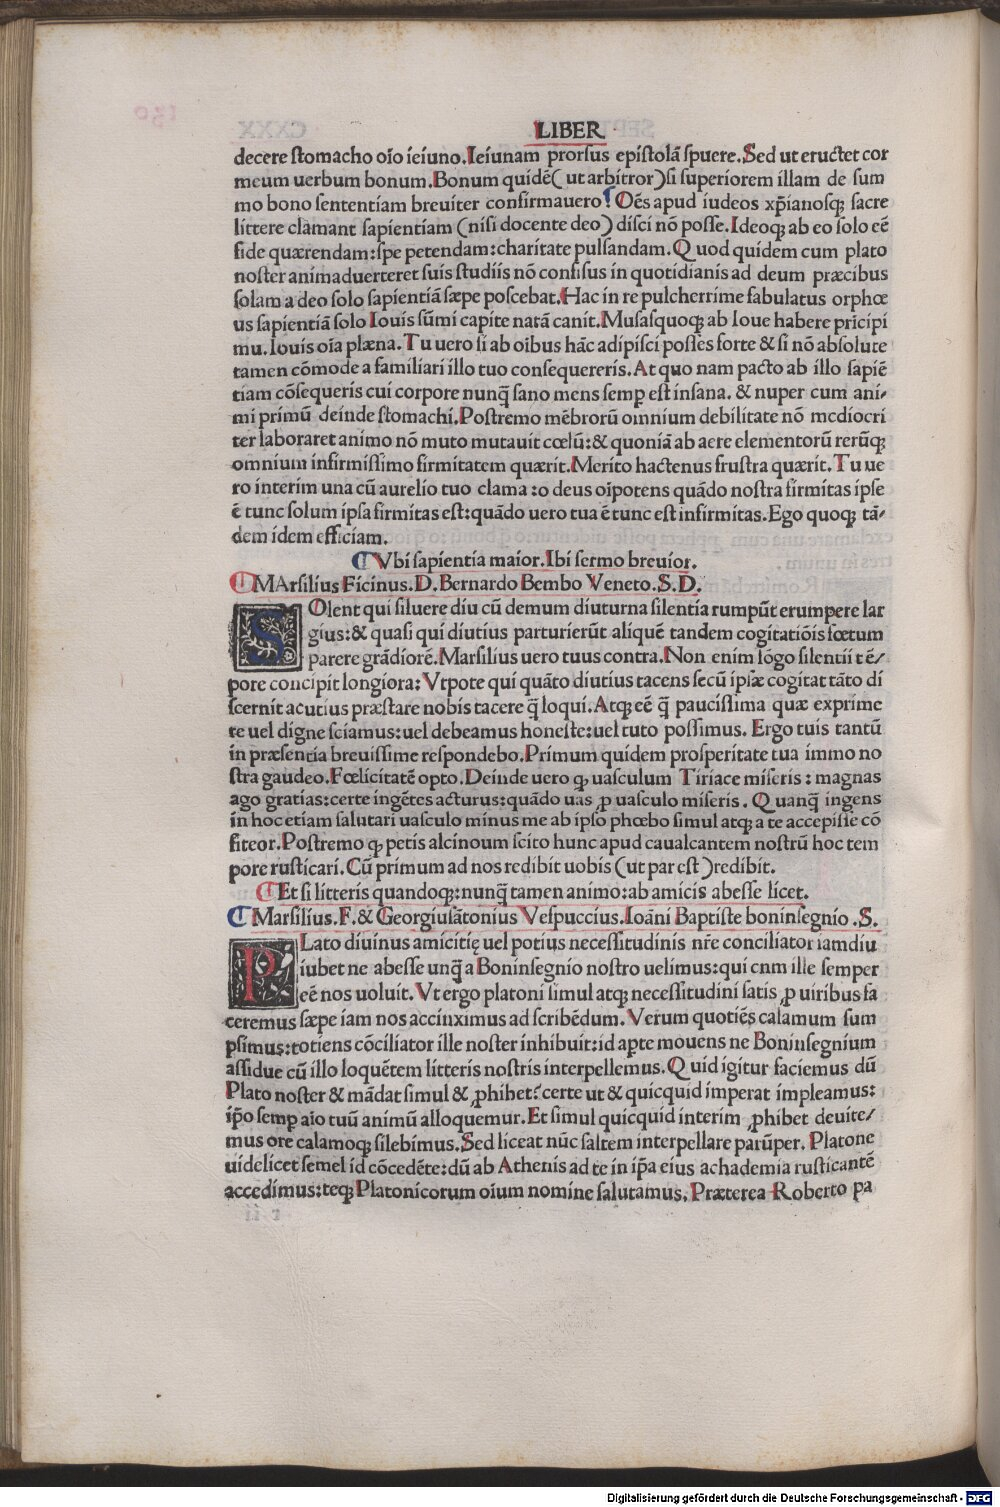 LIBER
decere stomacho oīo ieiuno. Ieiunam prorsus epistolā spuere. Sed ut eructet cor
meum uerbum bonum. Bonum quidē( ut arbitror )si superiorem illam de sum
mo bono sententiam breuiter confirmauero Oēs apud iudeos xp̄ianosq; sacre
littere clamant sapientiam (nisi docente deo) disci nō posse. Ideoq; ab eo solo eē
fide quærendam: spe petendam: charitate pulsandam. Quod quidem cum plato
noster animaduerteret suis studiis nō confisus in quotidianis ad deum præcibus
solam a deo solo sapientiā sæpe poscebat. Hac in re pulcherrime fabulatus orphœ
us sapientiā solo Iouis sūmi capite natā canit. Musasquoq; ab Ioue habere prīcipi
mu. Iouis oīa plæna. Tu uero si ab oībus hāc adipisci posses forte & si nō absolute
tamen cōmode a familiari illo tuo consequereris. At quo nam pacto ab illo sapiē
tiam cōsequeris cui corpore nunq̄ sano mens semp est insana. & nuper cum ani-
mi primū deinde stomachi. Postremo mēbrorū omnium debilitate nō mediocri
ter laboraret animo nō muto mutauit cœlū: & quoniā ab aere elementorū rerūq;
omnium infirmissimo firmitatem quærit. Merito hactenus frustra quærit. Tu ue
ro interim una cū aurelio tuo clama : o deus oīpotens quādo nostra firmitas ipse
ē tunc solum ipsa firmitas est: quādo uero tua ē tunc est infirmitas. Ego quoq; tā-
dem idem efficiam.
Vbi sapientia maior. Ibi sermo breuior.
MArsilius Ficinus. D. Bernardo Bembo Veneto. S. D.
SOlent qui siluere diu cū demum diuturna silentia rumpūt erumpere lar
gius: & quasi qui diutius parturierūt aliquē tandem cogitatiōis fœtum
parere grādiorē. Marsilius uero tuus contra. Non enim lōgo silentii tē-
pore concipit longiora: Vtpote qui quāto diutius tacens secū ip̄æ cogitat tāto di
scernit acutius præstare nobis tacere q̄ loqui. Atq; eē q̄ paucissima quæ exprime
re uel digne sciamus: uel debeamus honeste: uel tuto possimus. Ergo tuis tantū
in præsentia breuissime respondebo. Primum quidem prosperitate tua immo no
stra gaudeo. Fœlicitatē opto. Deinde uero q; uasculum Tiriace miseris : magnas
ago gratias: certe ingētes acturus: quādo uas ꝓ uasculo miseris. Quanq̄ ingens
in hoc etiam salutari uasculo minus me ab ipso phœbo simul atq; a te accepisse cō
fiteor. Postremo q; petis alcinoum scito hunc apud caualcantem nostrū hoc tem
pore rusticari. Cū primum ad nos redibit uobis (ut par est )redibit.
Et si litteris quandoq;: nunq̄ tamen animo: ab amicis abesse licet.
Marsilius. F. & Georgius ātonius Vespuccius. Ioāni Baptiste boninsegnio . S.
PLato diuinus amicitię uel potius necessitudinis nr̄e conciliator iamdiu
iubet ne abesse unq̄ a Boninsegnio nostro uelimus: qui cnm ille semper
eē nos uoluit. Vt ergo platoni simul atq; necessitudini satis ꝓ uiribus fa
ceremus sæpe iam nos accinximus ad scribēdum. Verum quotiēs calamum sum
psimus: totiens cōciliator ille noster inhibuit: id apte mouens ne Boninsegnium
assidue cū illo loquētem litteris nostris interpellemus. Quid igitur faciemus dū
Plato noster & mādat simul & ꝓhibet? certe ut & quicquid imperat impleamus:
ip̄o semp aīo tuū animū alloquemur. Et simul quicquid interim ꝓhibet deuite-
mus ore calamoq; silebimus. Sed liceat nūc saltem interpellare parūper. Platone
uidelicet semel id cōcedēte: dū ab Athenis ad te in ip̄a eius achademia rusticantē
accedimus: teq; Platonicorum oīum nomine salutamus, Præterea Roberto pa
Digitalisierung gefördert durch die Deutsche Forschungsgemeinschaft - DFG